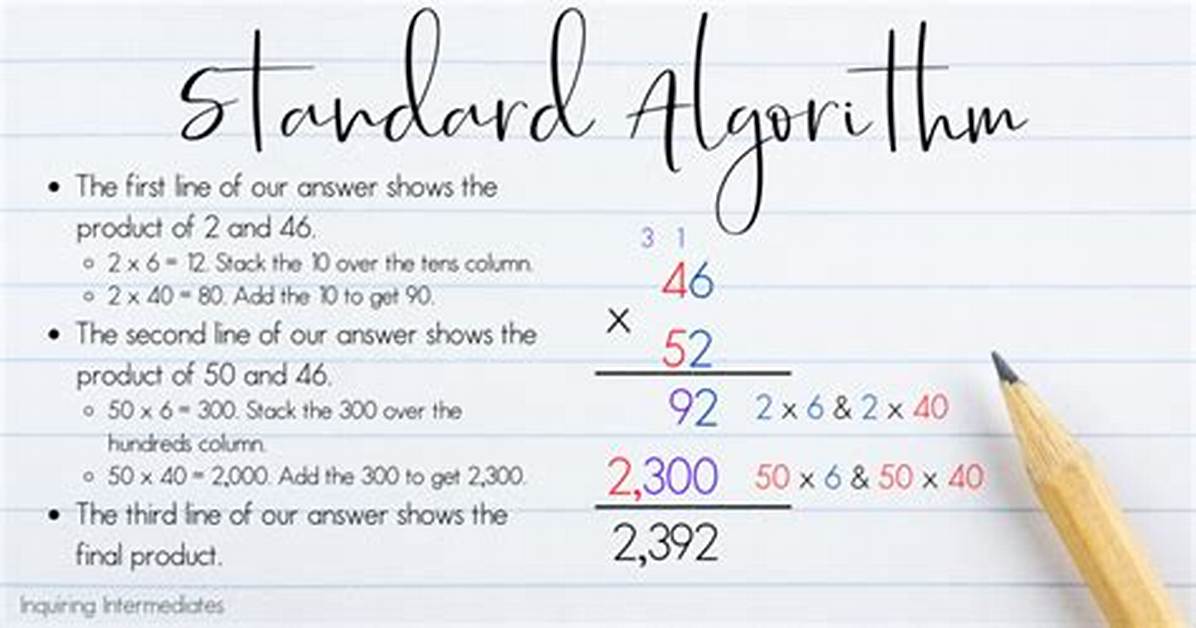 Standard Algorithm
• The first line of our answer shows the
product of 2 and 46.
◦ 2 x 6 = 12. Stack the 10 over the tens column.
◦ 2 x 40 = 80. Add the 10 to get 90.
• The second line of our answer shows the
product of 50 and 46.
◦ 50 x 6 = 300. Stack the 300 over the
hundreds column.
◦ 50 x 40 = 2,000. Add the 300 to get 2,300.
• The third line of our answer shows the
final product.
3 1
46
x
52
92 2 x 6 & 2 x 40
2,300 50 x 6 & 50 x 40
2,392
Inquiring Intermediates